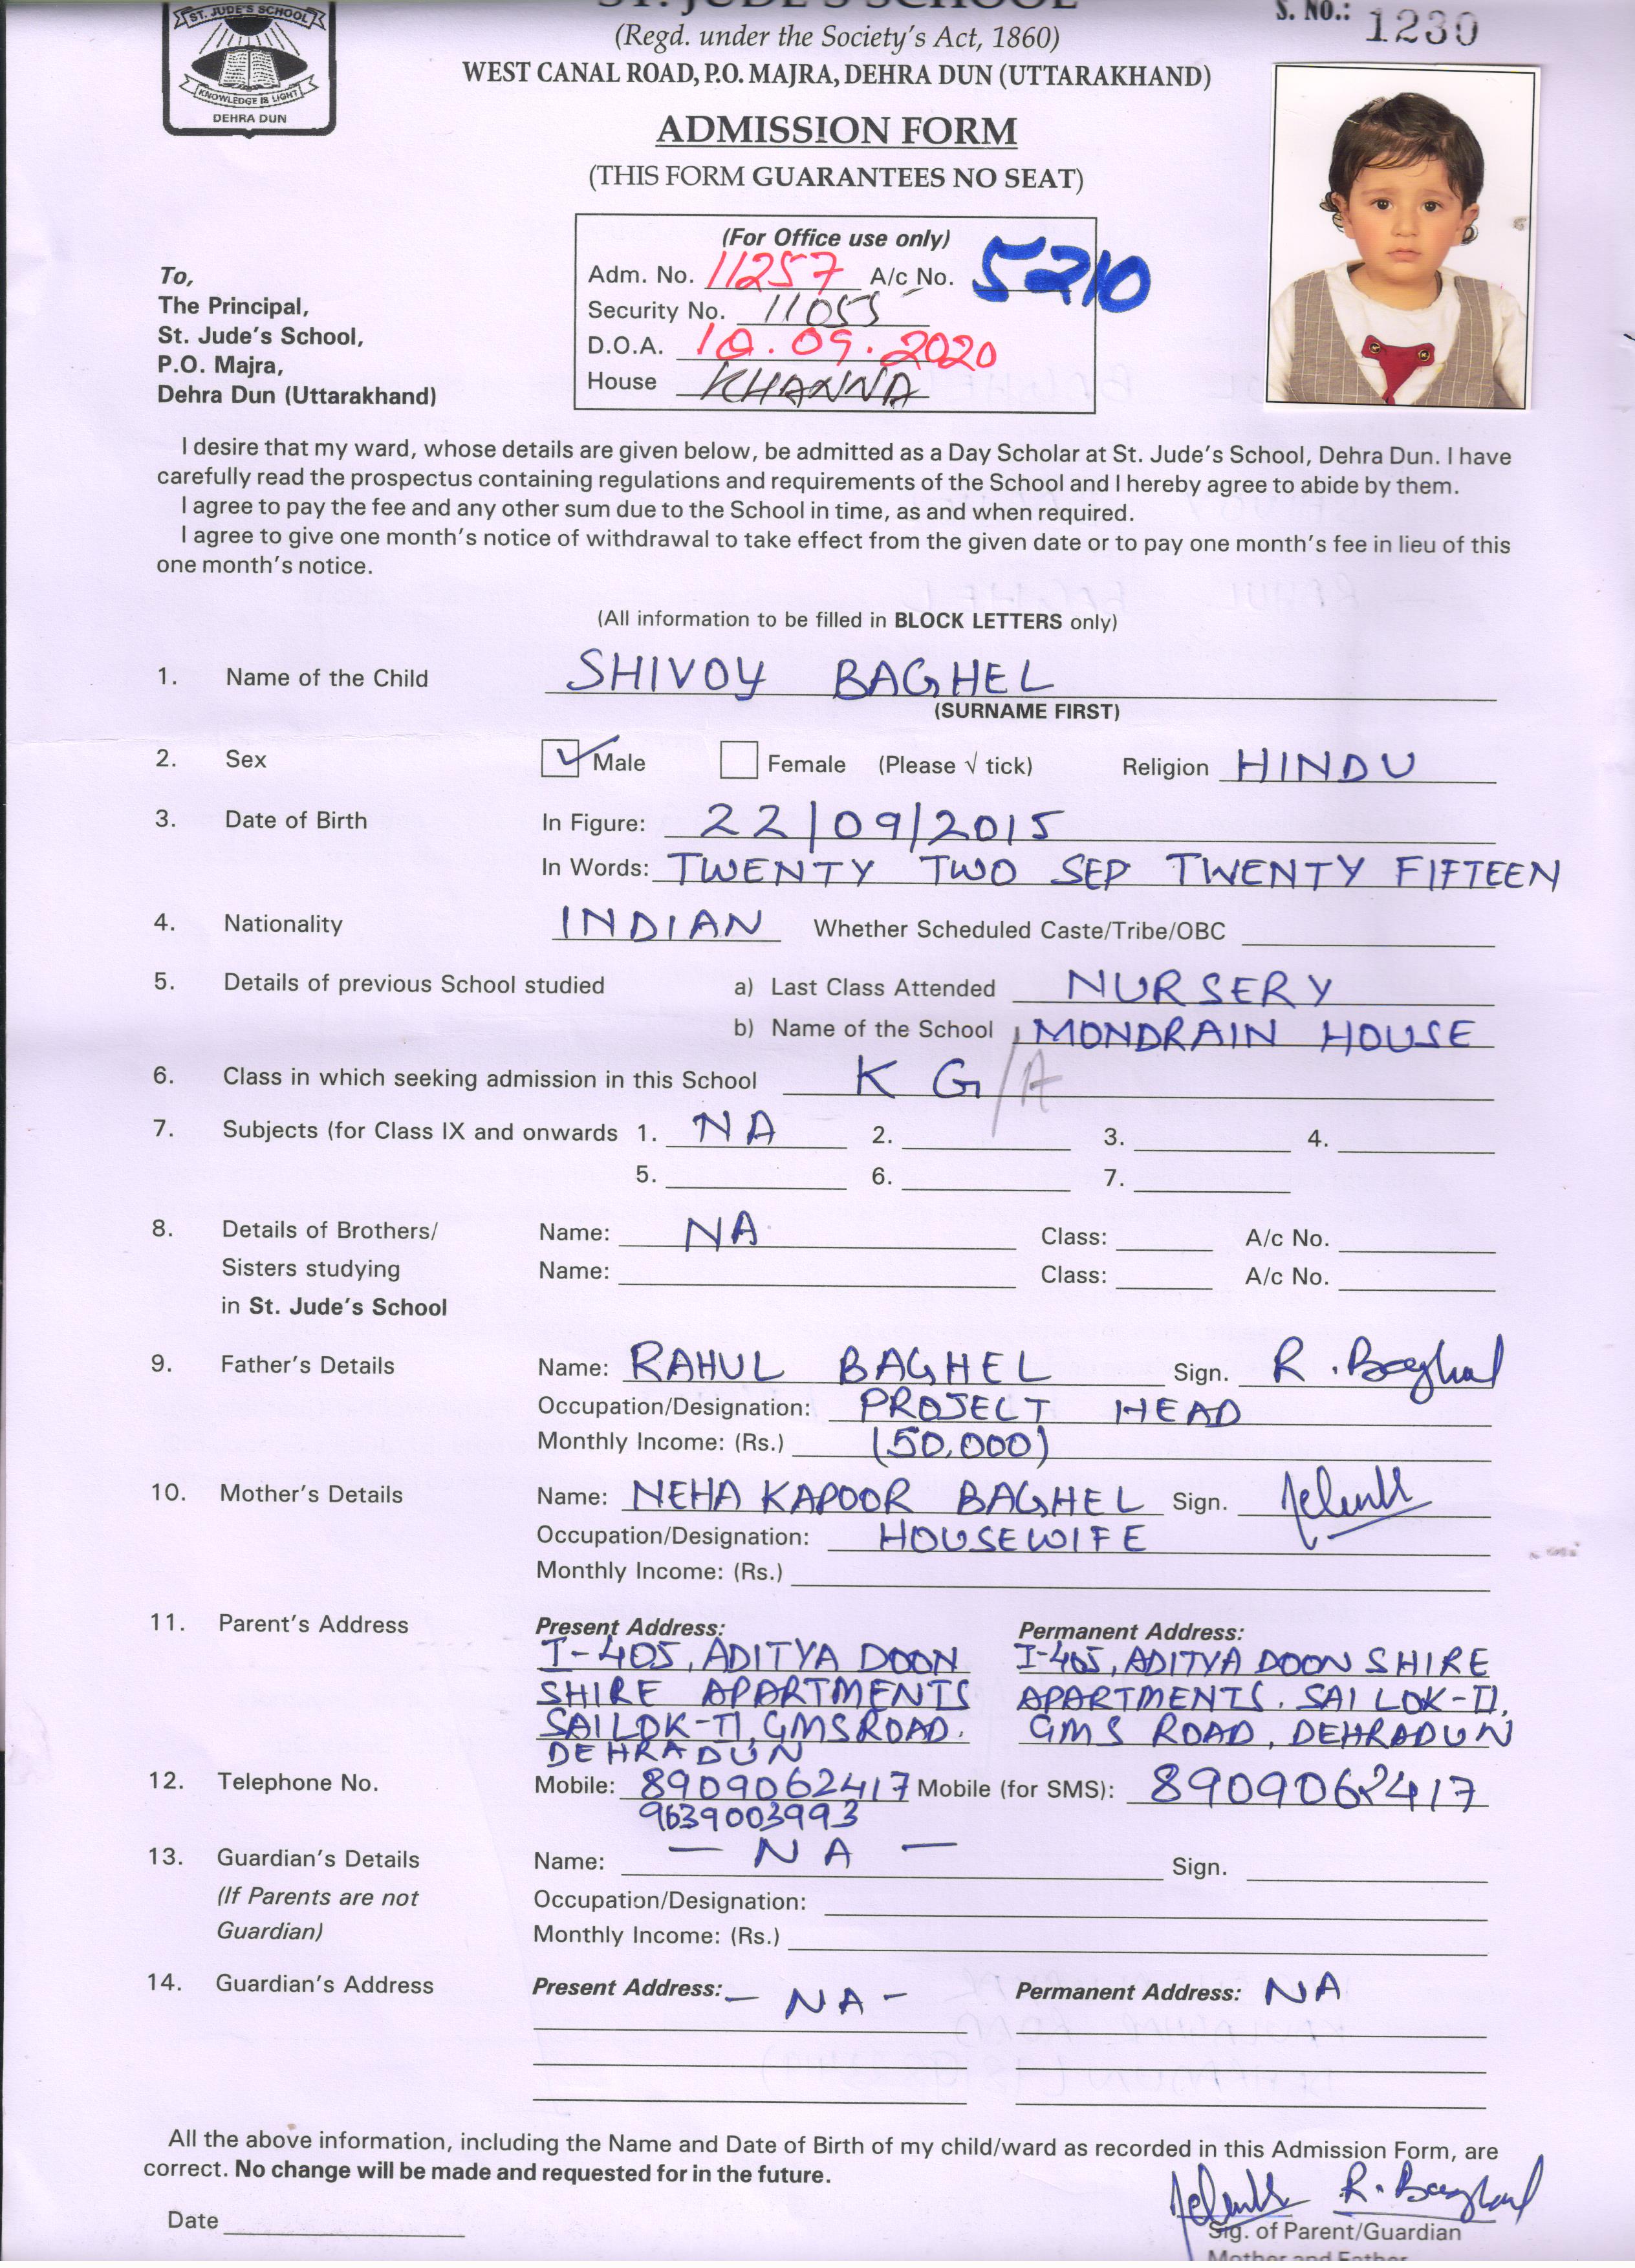 ST. JUDE'S SCHOOL
KNOWLEDGE IS LIGHT
DEHRA DUN
ST. JUDE'S SCHOOL
S. NO.: 1230
(Regd. under the Society's Act, 1860)
WEST CANAL ROAD, P.O. MAJRA, DEHRA DUN (UTTARAKHAND)
ADMISSION FORM
(THIS FORM GUARANTEES NO SEAT)
(For Office use only)
Adm. No. 11257 A/c No. 5210
Security No. 11055
D.O.A. 10.09.2020
House KHANNA
To,
The Principal,
St. Jude's School,
P.O. Majra,
Dehra Dun (Uttarakhand)
I desire that my ward, whose details are given below, be admitted as a Day Scholar at St. Jude's School, Dehra Dun. I have
carefully read the prospectus containing regulations and requirements of the School and I hereby agree to abide by them.
I agree to pay the fee and any other sum due to the School in time, as and when required.
I agree to give one month's notice of withdrawal to take effect from the given date or to pay one month's fee in lieu of this
one month's notice.
(All information to be filled in BLOCK LETTERS only)
1. Name of the Child SHIVOY BAGHEL
(SURNAME FIRST)
2. Sex ✓ Male Female (Please √ tick) Religion HINDU
3. Date of Birth In Figure: 22/09/2015
In Words: TWENTY TWO SEP TWENTY FIFTEEN
4. Nationality INDIAN Whether Scheduled Caste/Tribe/OBC
5. Details of previous School studied a) Last Class Attended NURSERY
b) Name of the School MONDRAIN HOUSE
6. Class in which seeking admission in this School K G/A
7. Subjects (for Class IX and onwards 1. NA 2. 3. 4.
5. 6. 7.
8. Details of Brothers/ Name: NA Class: A/c No.
Sisters studying Name: Class: A/c No.
in St. Jude's School
9. Father's Details Name: RAHUL BAGHEL Sign. R. Baghel
Occupation/Designation: PROJECT HEAD
Monthly Income: (Rs.) (50,000)
10. Mother's Details Name: NEHA KAPOOR BAGHEL Sign.
Occupation/Designation: HOUSEWIFE
Monthly Income: (Rs.)
11. Parent's Address Present Address: Permanent Address:
I-405, ADITYA DOON I-405, ADITYA DOON SHIRE
SHIRE APARTMENTS APARTMENTS, SAI LOK-II,
SAI LOK-II, GMS ROAD. GMS ROAD, DEHRADUN
DEHRADUN
12. Telephone No. Mobile: 8909062417 Mobile (for SMS): 8909062417
9639003993
13. Guardian's Details Name: — NA — Sign.
(If Parents are not Occupation/Designation:
Guardian) Monthly Income: (Rs.)
14. Guardian's Address Present Address: - NA - Permanent Address: NA
All the above information, including the Name and Date of Birth of my child/ward as recorded in this Admission Form, are
correct. No change will be made and requested for in the future.
R. Baghel
Date Sig. of Parent/Guardian
Mother and Father